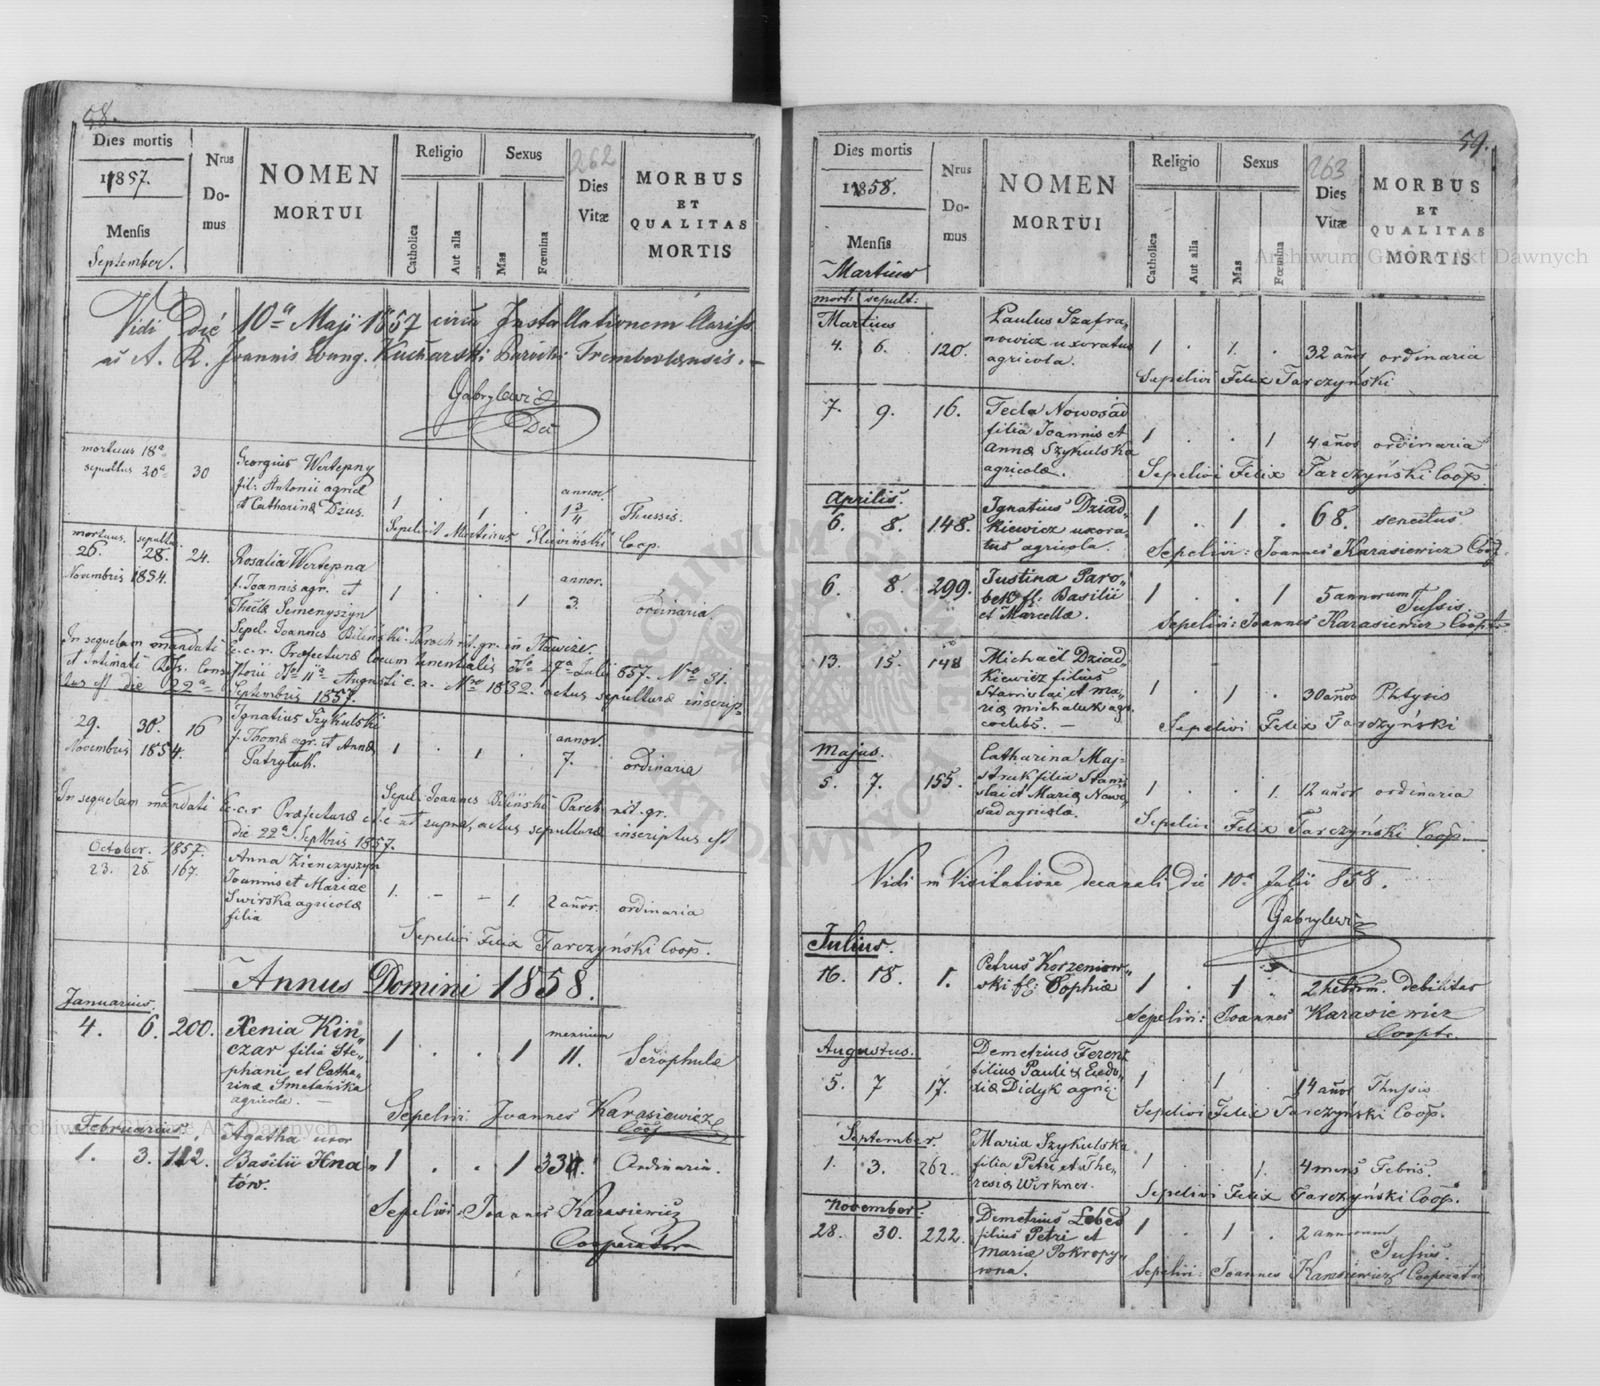 58.
Dies mortis
1857.
Mensis
September.
Nrus
Do-
mus
NOMEN
MORTUI
Religio
Catholica
Aut alia
Sexus
Mas
Fœmina
262
Dies
Vitæ
MORBUS
ET
QUALITAS
MORTIS
Vidi Die 10ª Maji 1857 circa Installationem Clariss
ac A. R. Joannis Evang. Kucharski Parochi Trembovlensis.
Gabrylewicz
Dec
mortuus 18ª
sepultus 20ª 30
Georgius Wertepny
fil: Antonii agricl
et Catharinæ Dzus.
1 . 1 . annor. 1 3/4 Thussis.
Sepelivit Martinus Sliwiński Coop.
mortuus. sepultus.
26. 28. 24.
Novembris 1854.
Rosalia Wertepna
f. Joannis agr. et
Theclæ Semenyszyn
1 . . 1 annor. 3. ordinaria.
Sepel. Joannes Biliński Paroch rit. gr. in Nawize.
In sequelam mandati C. c. r. Præfecturæ locum tenentialis dto 27ª Julii 857. Nro 31.
et intimati Rdss. Consistorii dto 11ª Augusti c. a. Nro 1832. actus sepulturæ inscrip-
tus est die 22ª Septembris 1857.
29. 30. 16
Novembris 1854.
Ignatius Szykulski
f. Thomæ agr. et Annæ
Patryluk.
1 . 1 . annor. 7. ordinaria
Sepel. Joannes Biliński Paroch rit. gr.
In sequelam mandati C. c. r Præfecturæ et c ut supra, actus sepulturæ inscriptus est
die 22ª Septbris 1857.
October. 1857.
23. 25. 167.
Anna Zienczyszyn
Joannis et Mariae
Swirska agricolæ
filia
1. - - 1. 2 añor. ordinaria
Sepelivi Felix Tarczyński Coop.
Annus Domini 1858.
Januarius.
4. 6. 200.
Xenia Kin„
czar filia Ste„
phani et Catha„
rinæ Smetańska
agricolæ. —
1 . . 1 mensium 11. Scrophulæ
Sepelivi: Joannes Karasiewicz
Coop
Februarius.
1. 3. 112.
Agatha uxor
Basilii Hna„
tów.
1 . . 1 Ordinaria.
Sepelivi: Joannes Karasiewicz
Cooperator
59.
Dies mortis
1858.
Mensis
Martius
Nrus
Do-
mus
NOMEN
MORTUI
Religio
Catholica
Aut alia
Sexus
Mas
Fœmina
263
Dies
Vitæ
MORBUS
ET
QUALITAS
MORTIS
Archiwum Główne Akt Dawnych
morti sepult:
Martius
4. 6. 120.
Paulus Szafra„
nowicz uxoratus
agricola.
1 . 1. . 32 años ordinaria
Sepelivi Felix Tarczyński
7. 9. 16.
Tecla Nowosad
filia Joannis et
Annæ Szykulska
agricolæ.
1 . . 1 4 años ordinaria
Sepelivi Felix Tarczyński Coop.
Aprilis.
6. 8. 148.
Ignatius Dziad„
kiewicz uxora„
tus agricola.
1 . 1 . 68. senectus
Sepelivi: Joannes Karasiewicz Coop.
6. 8. 299.
Justina Paro„
bek fl: Basilii
et Marcellæ.
1 . . 1 5 annorum Tussis
Sepelivi: Joannes Karasiewicz Coopt.
13. 15. 148
Michaël Dziad„
kiewicz filius
Stanislai et Ma„
riæ Michaluk agr.
coelebs. —
1 . 1 . 30 años Phtysis
Sepelivi Felix Tarczyński
Majus.
5. 7. 155.
Catharina Maj-
struk filia Stani
slai et Mariæ Nowo
sad agricolæ.
1 . . 1. 12 años ordinaria
Sepelivi Felix Tarczyński Coop.
Vidi in Visitatione decanali die 10ª Julii 858.
Gabrylewicz
Julius.
16. 18. 1.
Petrus Korzeniow„
ski fl: Sophiæ
1 . 1 „ 2 hebdm. debilitas
Sepelivi: Joannes Karasiewicz
Cooptr.
Augustus.
5. 7 17.
Demetrius Ferenc
filius Pauli & Eudo„
xiæ Didyk agric
1 . 1 . 14 años Thussis
Sepelivi Felix Tarczyński Coop.
September.
1. 3. 262.
Maria Szykulska
filia Petri et The„
resiæ Wirkner.
1 . . 1. 4 mens Febris.
Sepelivi Felix Tarczyński Coop.
November.
28. 30. 222.
Demetrius Lebed
filius Petri et
Mariæ Pokropy„
wna.
1 . 1 . 2 annorum Tussis.
Sepelivi: Joannes Karasiewicz Cooperator
Archiwum Główne Akt Dawnych